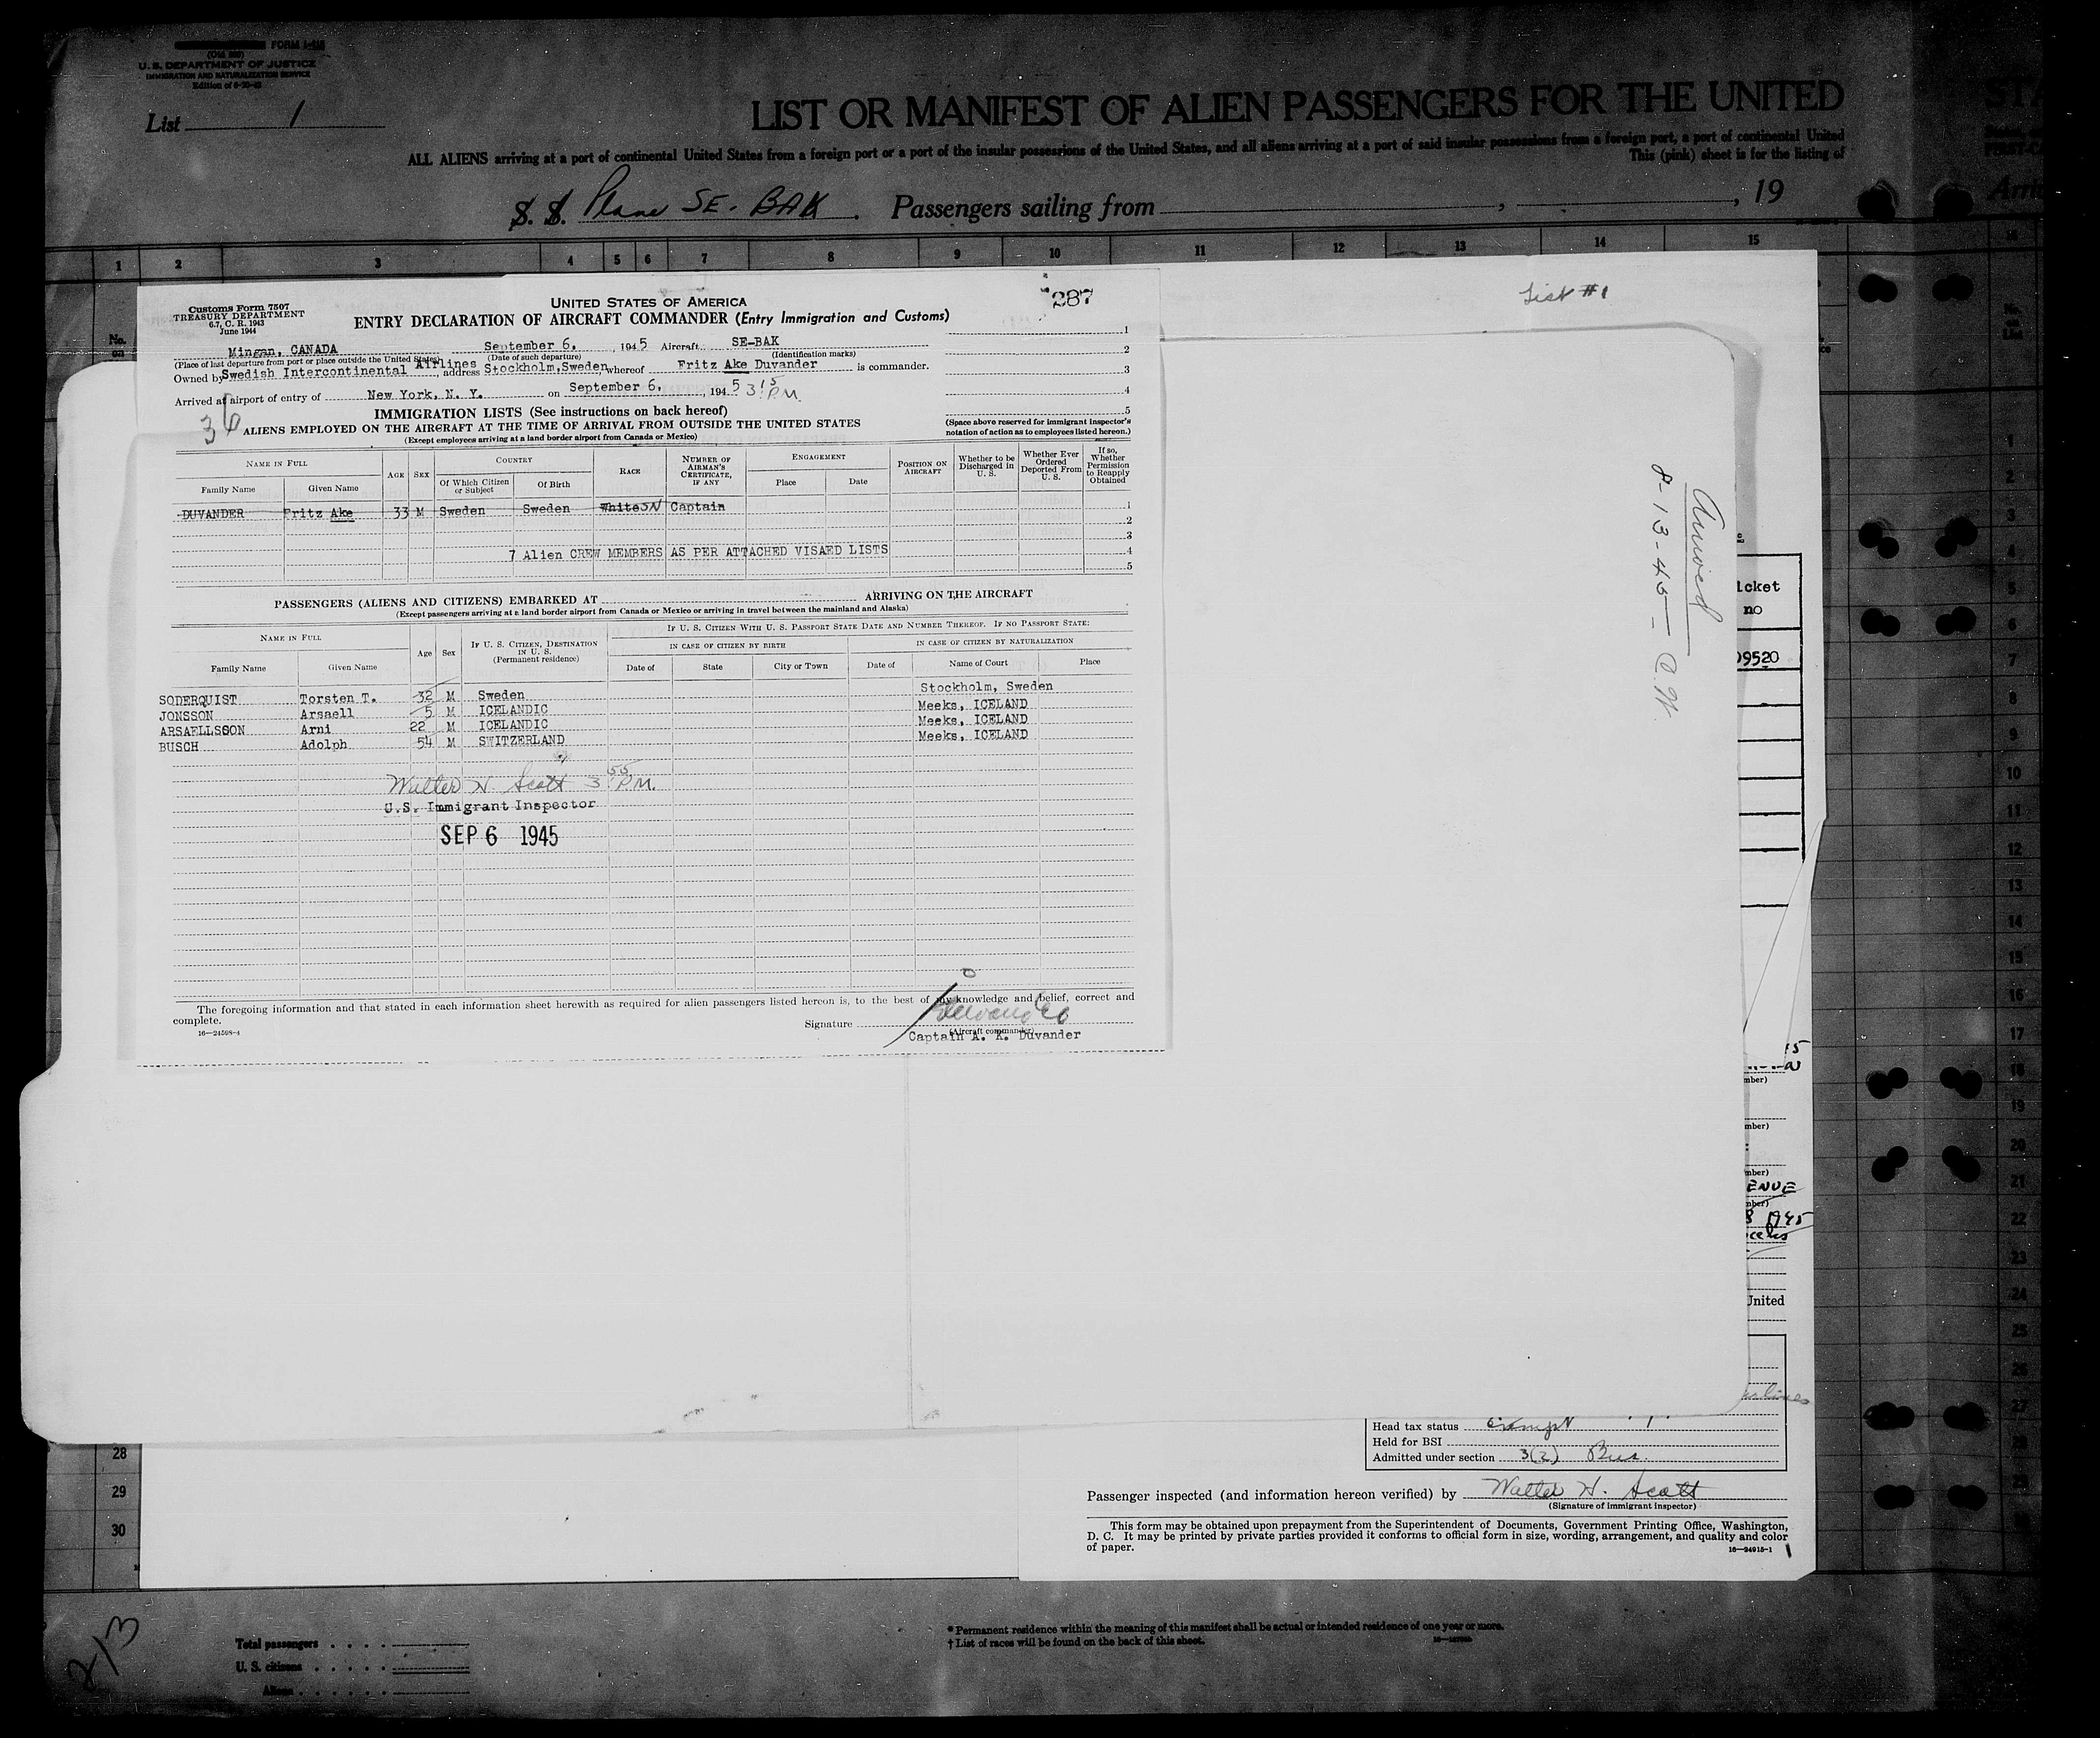 FORM I-415
(Old 500)
U. S. DEPARTMENT OF JUSTICE
IMMIGRATION AND NATURALIZATION SERVICE
List 1
LIST OR MANIFEST OF ALIEN PASSENGERS FOR THE UNITED
ALL ALIENS arriving at a port of continental United States from a foreign port or a port of the insular possessions of the United States, and all aliens arriving at a port of said insular possessions from a foreign port, a port of continental United
This (pink) sheet is for the listing of
S. S. Plane SE-BAK. Passengers sailing from , , 19
1 2 3 4 5 6 7 8 9 10 11 12 13 14 15
List #1
Customs Form 7507
TREASURY DEPARTMENT
6.7, C. R. 1943
June 1944
UNITED STATES OF AMERICA
287
ENTRY DECLARATION OF AIRCRAFT COMMANDER (Entry Immigration and Customs)
Mingan, CANADA September 6, , 1945 Aircraft SE-BAK
(Place of last departure from port or place outside the United States) (Date of such departure) (Identification marks)
Owned by Swedish Intercontinental Airlines, address Stockholm, Sweden whereof Fritz Ake Duvander is commander.
Arrived at airport of entry of New York, N. Y. on September 6, , 1945 3:15 P.M.
1
2
3
4
5
36
IMMIGRATION LISTS (See instructions on back hereof)
ALIENS EMPLOYED ON THE AIRCRAFT AT THE TIME OF ARRIVAL FROM OUTSIDE THE UNITED STATES
(Except employees arriving at a land border airport from Canada or Mexico)
(Space above reserved for immigrant inspector's notation of action as to employees listed hereon.)
NAME IN FULL AGE SEX COUNTRY RACE NUMBER OF AIRMAN'S CERTIFICATE, IF ANY ENGAGEMENT POSITION ON AIRCRAFT Whether to be Discharged in U. S. Whether Ever Ordered Deported From U. S. If so, Whether Permission to Reapply Obtained
Family Name Given Name Of Which Citizen or Subject Of Birth Place Date
DUVANDER Fritz Ake 33 M Sweden Sweden White Captain 1
2
3
7 Alien CREW MEMBERS AS PER ATTACHED VISAED LISTS 4
5
PASSENGERS (ALIENS AND CITIZENS) EMBARKED AT ARRIVING ON THE AIRCRAFT
(Except passengers arriving at a land border airport from Canada or Mexico or arriving in travel between the mainland and Alaska)
NAME IN FULL Age Sex IF U. S. CITIZEN, DESTINATION IN U. S. (Permanent residence) IF U. S. CITIZEN WITH U. S. PASSPORT STATE DATE AND NUMBER THEREOF. IF NO PASSPORT STATE:
IN CASE OF CITIZEN BY BIRTH IN CASE OF CITIZEN BY NATURALIZATION
Family Name Given Name Date of State City or Town Date of Name of Court Place
SODERQUIST Torsten T. 32 M Sweden Stockholm, Sweden
JONSSON Arsaell 5 M ICELANDIC Meeks, ICELAND
ARSAELLSSON Arni 22 M ICELANDIC Meeks, ICELAND
BUSCH Adolph 54 M SWITZERLAND Meeks, ICELAND
Walter H. Scott 3:55 P.M.
U.S. Immigrant Inspector
SEP 6 1945
The foregoing information and that stated in each information sheet herewith as required for alien passengers listed hereon is, to the best of my knowledge and belief, correct and complete.
16—24598-4
Signature Duvander
(Aircraft commander)
Captain A. K. Duvander
Arrived
8-13-45
icket
no
09520
mber)
mber)
mber)
ENUE
mber)
8 1945
United
Head tax status exempt
Held for BSI
Admitted under section 3(2) Bus.
Passenger inspected (and information hereon verified) by Walter H. Scott
(Signature of immigrant inspector)
This form may be obtained upon prepayment from the Superintendent of Documents, Government Printing Office, Washington, D. C. It may be printed by private parties provided it conforms to official form in size, wording, arrangement, and quality and color of paper.
16—24915-1
28
29
30
Total passengers
U. S. citizens
Aliens
* Permanent residence within the meaning of this manifest shall be actual or intended residence of one year or more.
† List of races will be found on the back of this sheet.